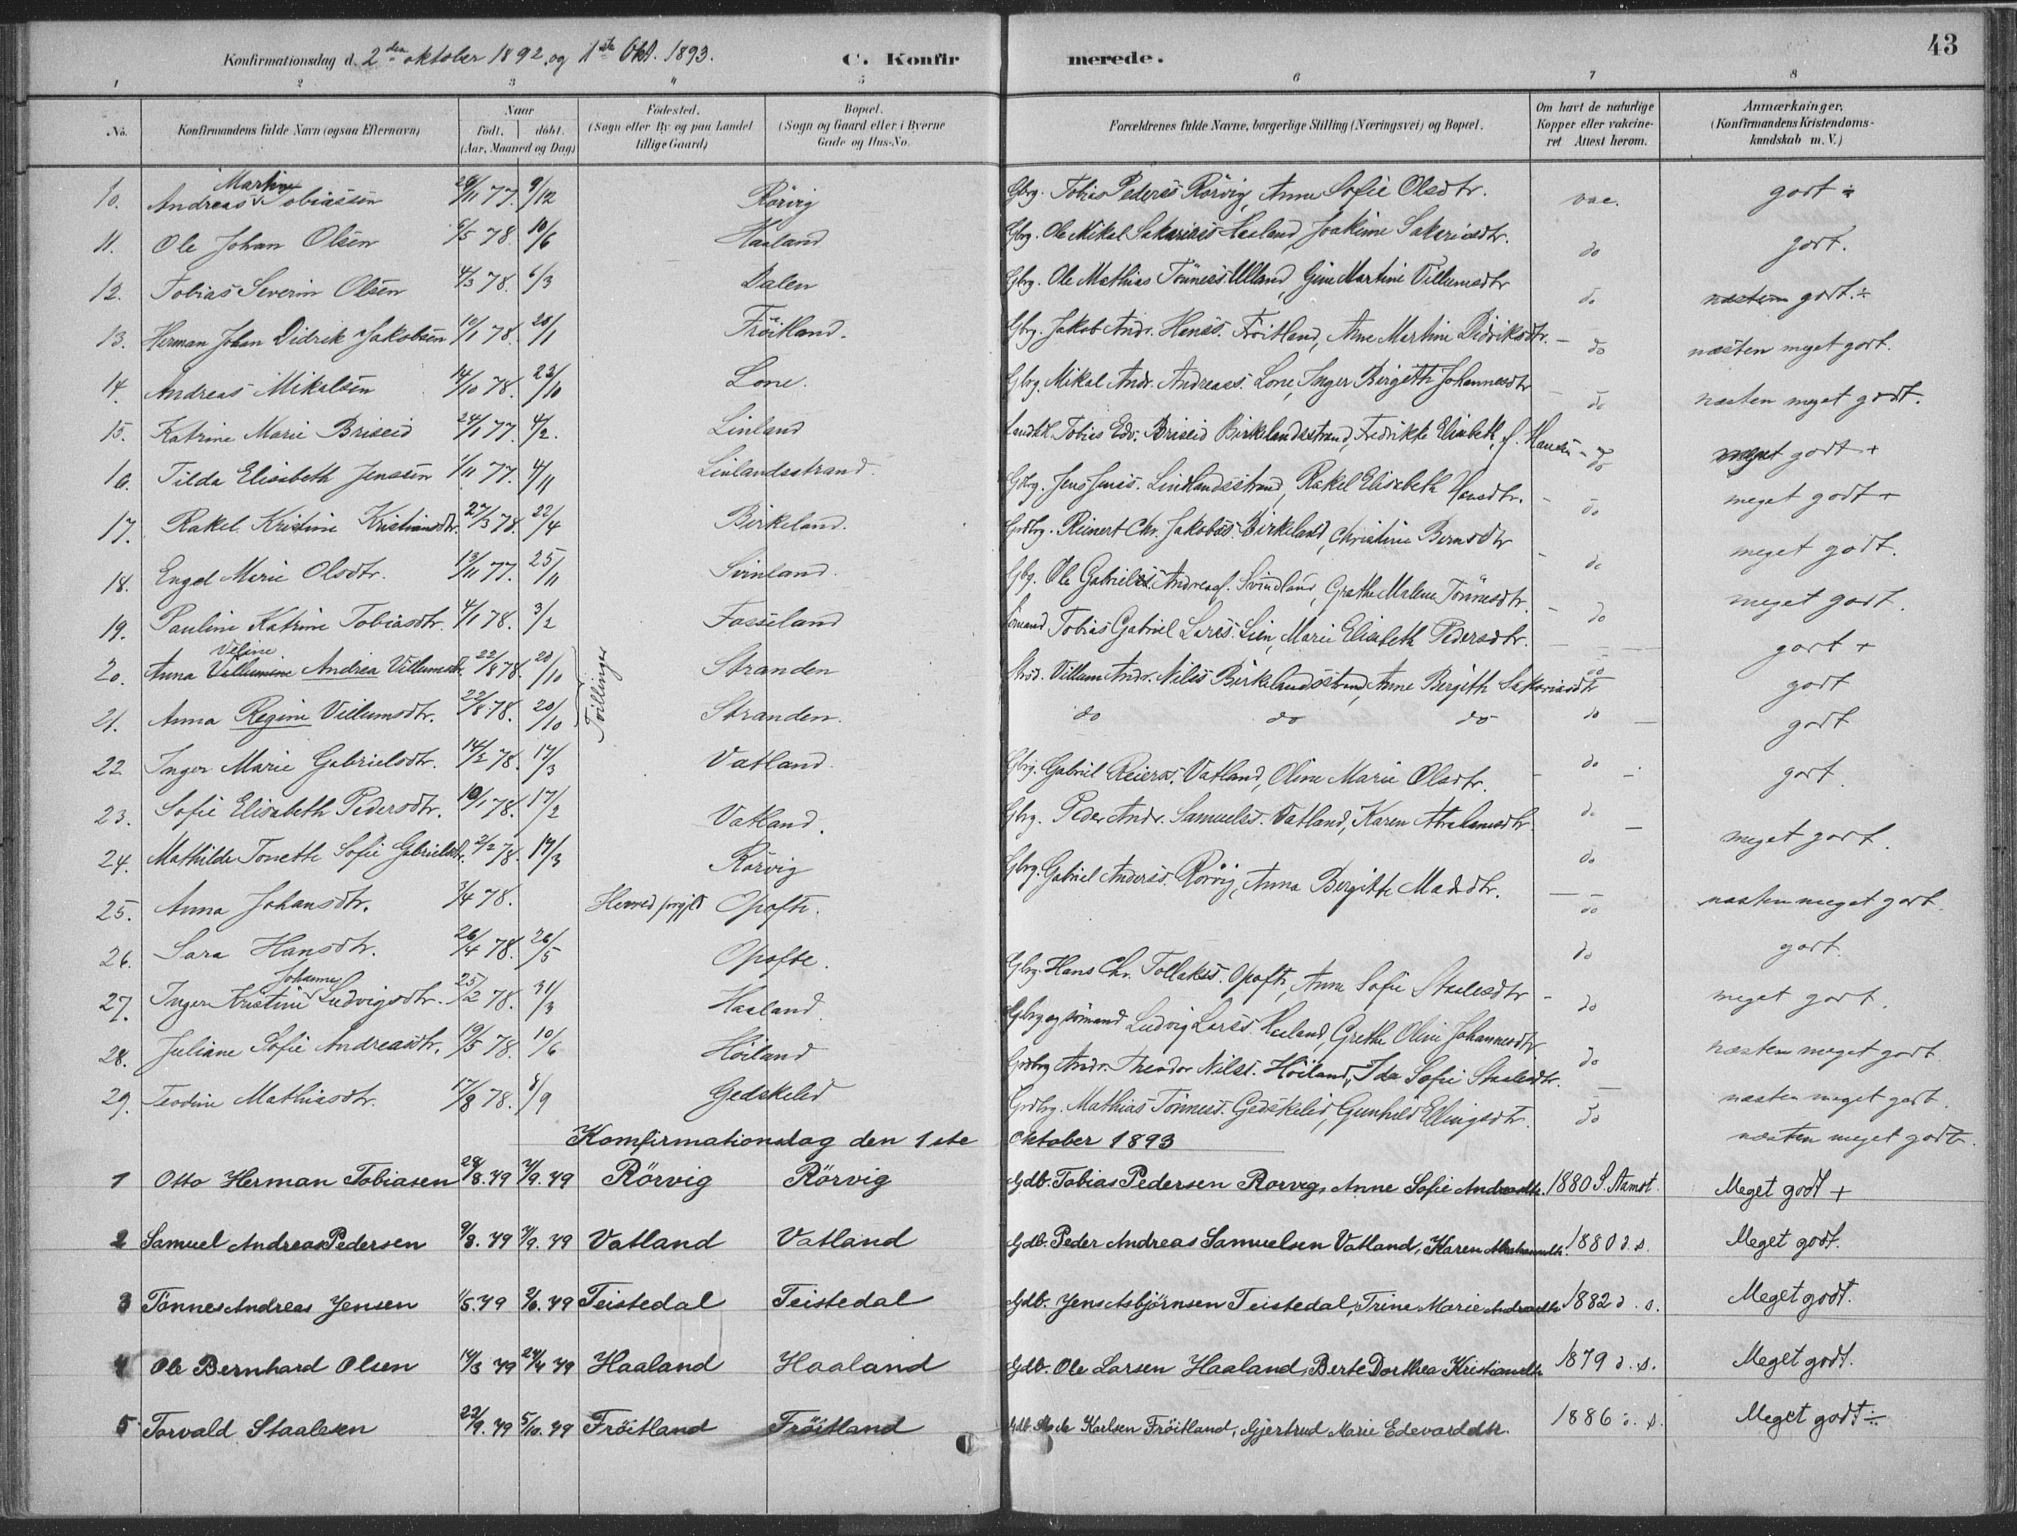 Konfirmationsdag d. 2den oktober 1892, og 1ste Okt. 1893. C. Konfirmerede. 43
1 2 3 4 5 6 7 8
No. Konfirmandens fulde Navn (ogsaa Efternavn) Naar födt. döbt. (Aar, Maaned og Dag) Födested. (Sogn eller By og paa Landet tillige Gaard) Bopæl. (Sogn og Gaard eller i Byerne Gade og Hus-No. Forældrenes fulde Navne, borgerlige Stilling (Næringsvei) og Bopæl. Om havt de naturlige Kopper eller vakcineret Attest herom. Anmærkninger. (Konfirmandens Kristendomskundskab m. V.)
10. Andreas Martin Tobiassen 29/11 77. 9/12 Rörvig Gbrg. Tobias Pederss Rörvig, Anne Sofie Olsdtr. vac. godt ÷
11. Ole Johan Olsen 6/5 78. 10/6 Haaland Gbrg. Ole Mikal Sakariass Haaland, Joakime Sakariasdtr. do godt.
12. Tobias Severin Olsen 4/3 78. 6/3 Dalen Gbrg. Ole Mathias Tönness. Ulland, Gine Martine Villumsdtr do næsten godt. ÷
13. Herman Johan Didrik Jakobsen 10/1 78. 20/1 Fröitland. Gbrg. Jakob Andr. Hanss. Fröitland, Ane Martine Didriksdtr. do næsten meget godt.
14. Andreas Mikalsen 14/10 78. 23/10 Lone. Gbrg. Mikal Andr. Andreass. Lone, Inger Bergeth Johannesdtr do næsten meget godt.
15. Katrine Marie Briseid 24/1 77. 4/2. Linland Tobias Edv. Briseid Birkelandsstrand, Fredrikke Elisabeth, f. Hansen do meget godt +
16. Tilda Elisabeth Jensen 1/11 77. 4/11 Linlandsstrand. Gbrg. Jens Jenss. Lindlandsstrand, Rakel Elisabeth Hansdtr. do meget godt +
17. Rakel Kristine Kristiansdtr. 27/3 78. 22/4 Birkeland. Grdbrg. Reinert Chr. Jakobss. Birkeland, Christine Berntsdtr do meget godt.
18. Engel Marie Olsdtr. 13/11 77. 25/11 Svinland. Gbg. Ole Gabriel Andreass. Svindland, Grethe Malene Tönnesdtr. do meget godt.
19. Pauline Katrine Tobiasdtr. 4/1 78. 3/2 Fosseland Sömand Tobias Gabriel Larss. Lien, Marie Elisabeth Pedersdtr. do godt +
20. Anna Villumine Veline Andrea Villumsdtr. 22/8 78. 20/10 Tvillinger Stranden Villum Andr. Nilss Birkelandsstrand, Anne Bergith Sakariasdtr do godt
21. Anna Regine Villumsdtr. 22/8 78. 20/10 Stranden. do do do do godt
22 Inger Marie Gabrielsdtr. 14/2 78. 17/3 Vatland. Gbrg. Gabriel Reierss. Vatland, Oline Marie Olsdtr. do godt.
23. Sofie Elisabeth Pedersdtr. 10/1 78. 17/2 Vatland. Gbrg. Peder Andr. Samuelss. Vatland, Karen Abrahamsdtr do meget godt.
24. Mathilde Tonette Sofie Gabrielsdtr. 2/2 78. 17/3 Rörvig Gbrg. Gabriel Anderss. Rörvig, Anna Bergitte Madsdtr. do næsten meget godt.
25. Anna Johansdtr. 3/4 78. Opofte. do godt.
26. Sara Hansdtr. 26/4 78. 26/5 Opofte. Gbrg. Hans Chr. Tollakss. Opofte, Anne Sofie Staalesdtr do meget godt.
27. Inger Kristine Johanne Ludvigsdtr. 25/2 78. 31/3 Haaland. Gbrg og sömand Ludvig Larss Haaland, Grethe Oline Johannesdtr do næsten meget godt.
28. Juliane Sofie Andreasdtr. 19/5 78. 10/6 Höiland Grdbrg Andr. Theodor Nilss. Höiland, Ida Sofie Staalesdtr. næsten meget godt.
29. Teodine Mathiasdtr. 17/8 78. 8/9 Gedskelid Grdbrg. Mathias Tönness. Gedskelid, Gunhild Ellingsdtr. do næsten meget godt.
Komfirmationsdag den 1ste Oktober 1893
1 Otto Herman Tobiasen 29/8. 79 7/9. 79 Rörvig Rörvig Gdb. Tobias Pedersen Rorvig, Anne Sofie Andreasdtr. 1880 S. Stamst. Meget godt +
2 Samuel Andreas Pedersen 9/8. 79 7/9. 79 Vatland Vatland Gdb. Peder Andreas Samuelsen Vatland, Karen Abrahamsdtr. 1880 d. s. Meget godt.
3 Tönnes Andreas Jensen 1/5. 79 2/6. 79 Teistedal Teistedal Gdb. Jens Asbjörnsen Teistedal, Trine Marie Andreasdtr 1882 d. s. Meget godt.
4 Ole Bernhard Olsen 14/3 79 27/4 79 Haaland Haaland Gdb. Ole Larsen Haaland, Berte Dorthea Kristiansdtr 1879 d. s. Meget godt.
5 Torvald Staalesen 22/9. 79 5/10. 79 Fröitland Fröitland Gdb. Karlsen Fröitland, Gjertrud Marie Edevardsdtr. 1886 d. s. Meget godt ÷